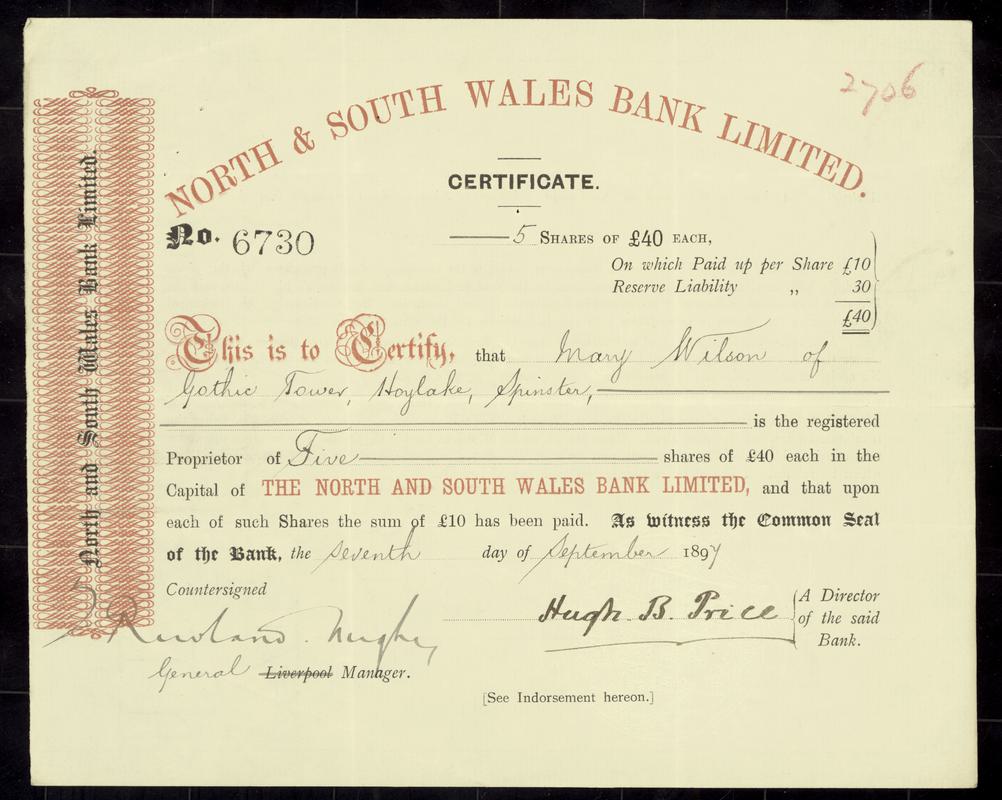 2706
NORTH & SOUTH WALES BANK LIMITED.
CERTIFICATE.
North and South Wales Bank Limited.
No. 6730
5 SHARES OF £40 EACH,
On which Paid up per Share £10
Reserve Liability „ 30
£40
This is to Certify, that Mary Wilson of
Gothic Tower, Hoylake, Spinster,
is the registered
Proprietor of Five shares of £40 each in the
Capital of THE NORTH AND SOUTH WALES BANK LIMITED, and that upon
each of such Shares the sum of £10 has been paid. As witness the Common Seal
of the Bank, the seventh day of September 1897
Countersigned
Rowland Hughes
General Liverpool Manager.
Hugh B. Price
A Director
of the said
Bank.
[See Indorsement hereon.]